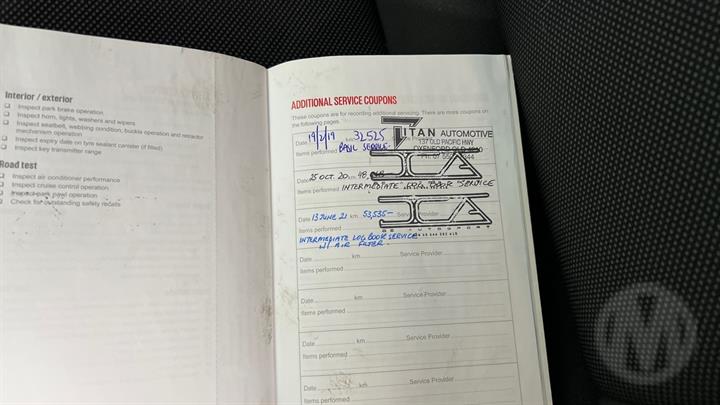 Interior / exterior
Inspect park brake operation
Inspect horn, lights, washers and wipers
Inspect seatbelt, webbing condition, buckle operation and retractor
mechanism operation
Inspect expiry date on tyre sealant canister (if fitted)
Inspect key transmitter range
Road test
Inspect air conditioner performance
Inspect cruise control operation
Inspect park pawl operation
Check for outstanding safety recalls
ADDITIONAL SERVICE COUPONS
These coupons are for recording additional servicing. There are more coupons on
the following pages.
Date 19/2/19 km 32525
TITAN AUTOMOTIVE
137 OLD PACIFIC HWY
OXENFORD QLD 4210
Items performed BASIC SERVICE
Date 25 OCT 20 km 48,
Items performed INTERMEDIATE LOG BOOK SERVICE
Date 13 JUNE 21 km 53,535- Service Provider
Items performed
INTERMEDIATE LOG BOOK SERVICE
W/ AIR FILTER
Date km Service Provider
Items performed
Date km Service Provider
Items performed
Date km Service Provider
Items performed
Date km Service Provider
Items performed
M